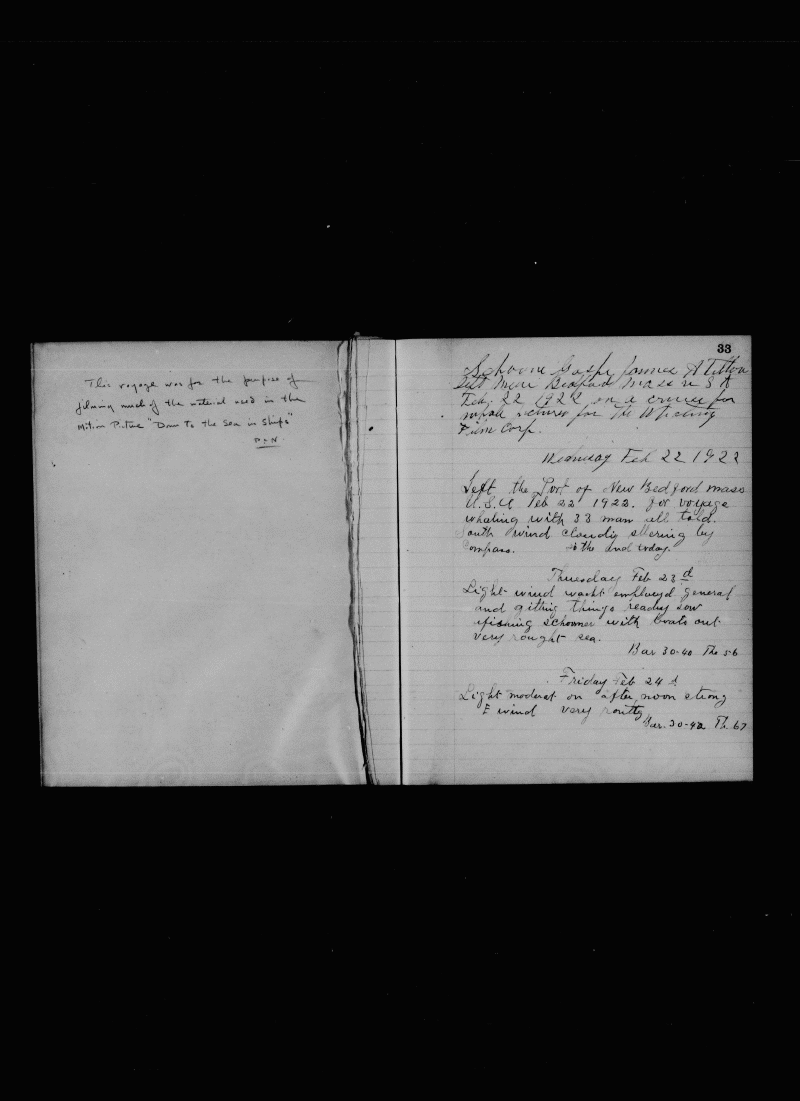 This voyage was for the purpose of
filming much of the material used in the
Motion Picture "Down To the Sea in Ships"
33
Schooner Gaspe former A Tilton
Left New Bedford Mass U S A
Feb. 22 1922 on a cruise for
for The Whaling
Film Corp.
Wednesday Feb 22 1922
Left the Port of New Bedford mass
U.S.A Feb 22 1922. for voyage
whaling with 33 man all told.
South wind cloudy stering by
Compass.
Thuesday Feb 23 d
Light wind wacht employd general
and gitting things ready saw
schooner with boats out
very rought sea.
Bar 30-40 The 56
Friday Feb 24 d
Light moderat on after noon strong
E wind very
Bar. 30-42 Th 67